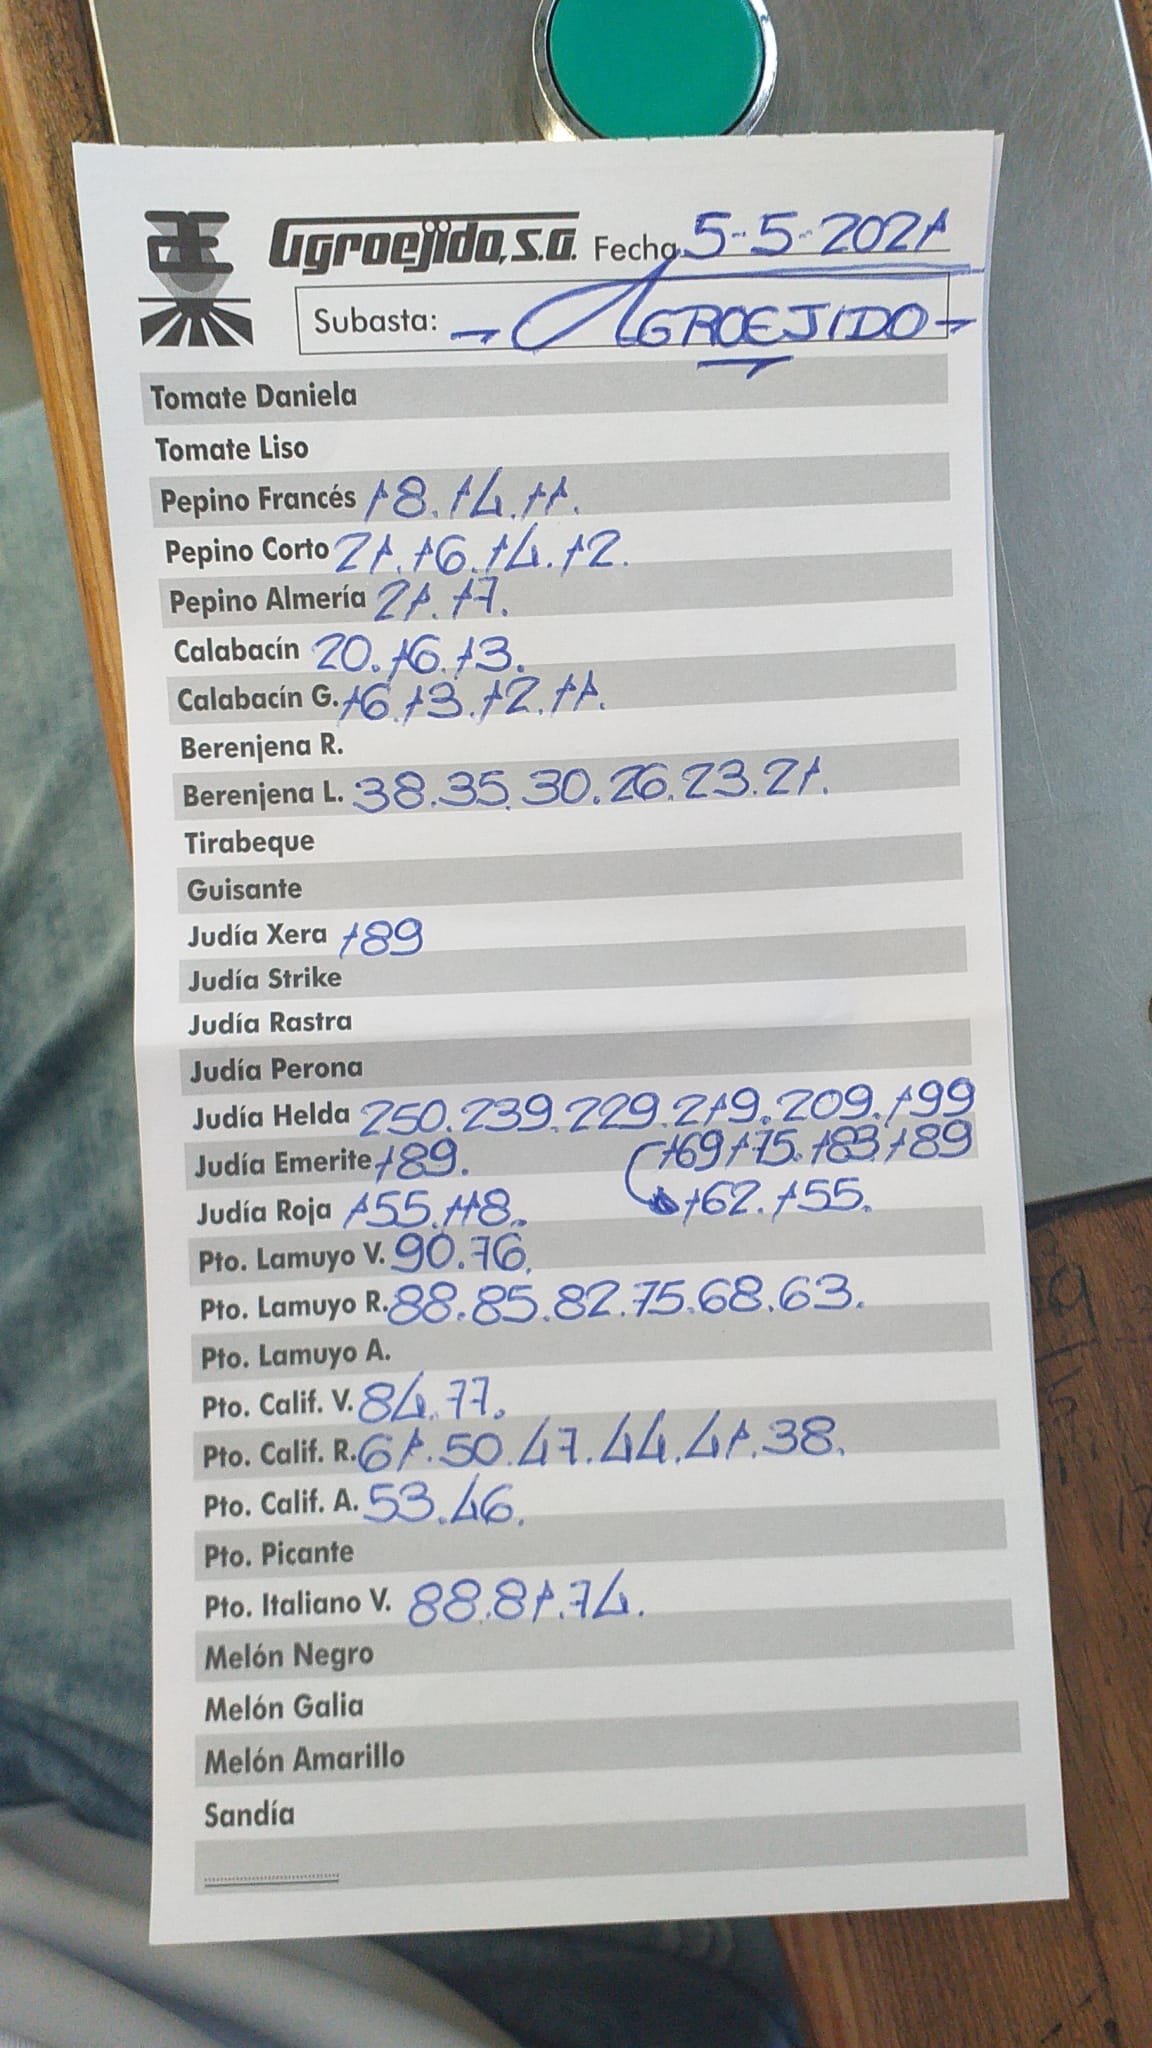 Agroejido, S.A. Fecha 5-5-2021
Subasta: - AGROEJIDO -
Tomate Daniela
Tomate Liso
Pepino Francés 18.14.11.
Pepino Corto 21.16.14.12.
Pepino Almería 21.17.
Calabacín 20.16.13.
Calabacín G. 16.13.12.11.
Berenjena R.
Berenjena L. 38.35.30.26.23.21.
Tirabeque
Guisante
Judía Xera 189
Judía Strike
Judía Rastra
Judía Perona
Judía Helda 250.239.229.219.209.199
Judía Emerite 189. 169.175.183.189
Judía Roja 155.118. 162.155.
Pto. Lamuyo V. 90.76.
Pto. Lamuyo R. 88.85.82.75.68.63.
Pto. Lamuyo A.
Pto. Calif. V. 84.77.
Pto. Calif. R. 61.50.47.44.41.38.
Pto. Calif. A. 53.46.
Pto. Picante
Pto. Italiano V. 88.81.74.
Melón Negro
Melón Galia
Melón Amarillo
Sandía